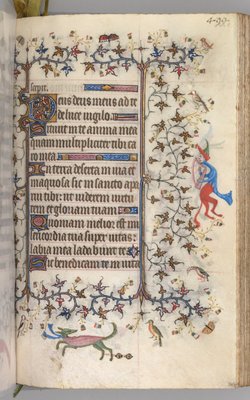 scipit.
Deus deus meus ad te
de luce uigilo.
Sitiuit in te anima mea
quam multipliciter tibi ca
ro mea.
In terra deserta inuia et
inaquosa sic in sancto appa
rui tibi: ut uiderem uirtu
tem et gloriam tuam.
Quoniam melior est mi
sericordia tua super uitas:
labia mea laudabunt te.
Sic benedicam te in uita